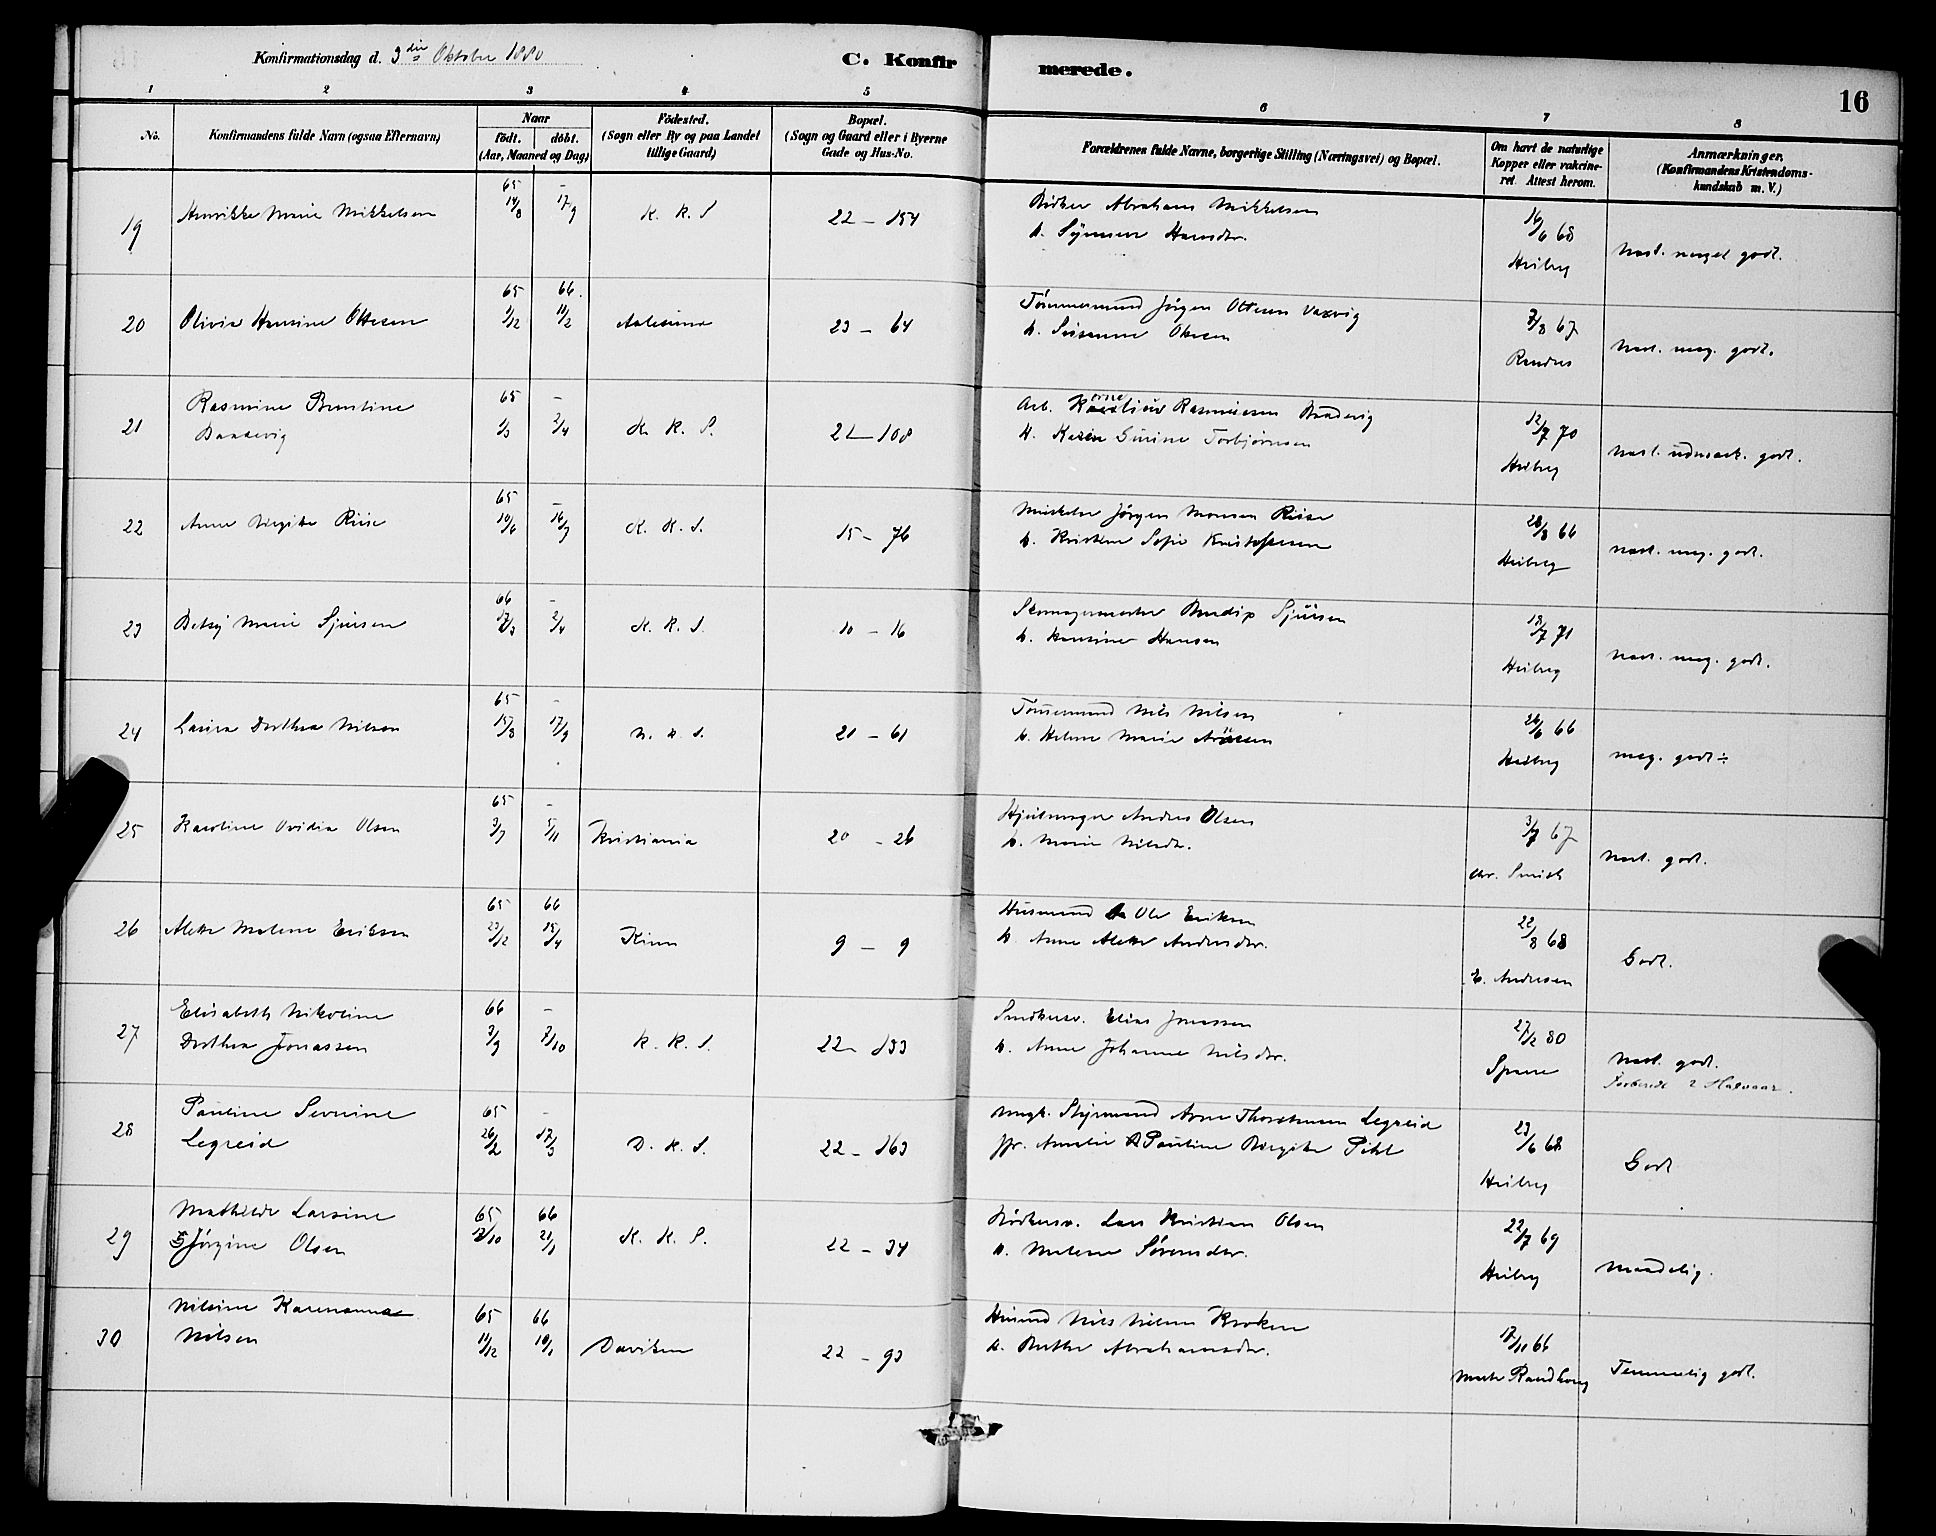 Konfirmationsdag d. 3die Oktober 1880
C. Konfirmerede.
16
1 2 3 4 5 6 7 8
No.
Konfirmandens fulde Navn (ogsaa Efternavn)
Naar
födt. döbt.
(Aar, Maaned og Dag)
Födested.
(Sogn eller By og paa Landet
tillige Gaard)
Bopæl.
(Sogn og Gaard eller i Byerne
Gade og Hus-No.
Forældrenes fulde Navne, borgerlige Stilling (Næringsvei) og Bopæl.
Om havt de naturlige
Kopper eller vakcine-
ret. Attest herom.
Anmærkninger.
(Konfirmandens Kristendoms-
kundskab m. V.)
65 –
19 Henrikke Marie Mikkelsen 14/8 17/9 K. K. S 22 – 154
Bödker Abraham Mikkelsen
h. Hansdtr.
16/6 68
Heiberg
Næst. meget godt.
65 66.
20 Olivia Hansine Ottesen 1/12 11/2 Aalesund 23 – 64
Tömmermand Jörgen Ottesen Vaxvig
h. Susanne Olsen
7/8 67
Randers
Næst. meg. godt.
65 –
21 Rasmine Bentine 1/3 2/4 K. K. S. 21 – 108
Baadsvig
Arb. Rasmussen Baadsvig
h. Karen Gurine Torbjørnsen
12/7 70
Heiberg
Næst. udmærk. godt.
65 –
22 Anne Birgitte Riise 10/6 16/9 K. K. S. 15 – 76
Jörgen Monsen Riise
h. Kristine Sofie Kristofersen
28/8 66
Heiberg
Næst. meg. godt.
66 –
23 Betsy Marie Sjursen 12/3 2/4 K. K. S. 10 – 16
Skomagermester Bendix Sjursen
h. Hansine Hansen
18/7 71
Heiberg
Næst. meg. godt.
65 –
24 Laura Dorthea Nilsen 15/8 17/9 N. K. S. 21 – 61
Tömmermand Nils Nilsen
h. Helene Marie
26/6 66
Heiberg
meg. godt ÷
65 –
25 Karoline Ovidia Olsen 3/7 5/11 Kristiania 20 – 26
Hjulmager Anders Olsen
h. Marie Nilsdtr.
3/7 67
Chr. Smith
Næst. godt.
65 66
26 Alette Malene Eriksen 23/12 15/4 Kinn 9 – 9
Husmand Ole Eriksen
h. Anne Alette Andersdtr.
22/8 68
E. Andresen
Godt.
66 –
27 Elisabeth Nikoline 3/9 7/10 K. K. S. 22 – 133
Dorthea Jonassen
Snedkersv. Elias Jonassen
h. Anne Johanne Nilsdtr.
27/2 80
Næst. godt.
Forberedt 2 Halvaar.
65 –
28 Pauline Severine 26/2 17/3 D. K. S. 22 – 163
Legreid
ungk. Styrmand Arne Thorstensen Legreid
Amalie Pauline Birgitte Pihl
23/6 68
Heiberg
Godt
65 66
29 Mathilde Larsine 12/10 21/1 K. K. S. 22 – 34
Jørgine Olsen
Bödkersv. Lars Kristian Olsen
h. Malene Sörensdtr.
22/7 69
Heiberg
Maadelig.
65 66
30 Nilsine Karenanna 11/12 10/1 Daviken 22 – 93
Nilsen
Husmd Nils Nilsen Kroken
h. Berthe Abrahamsdtr.
17/11 66
Temmelig godt.